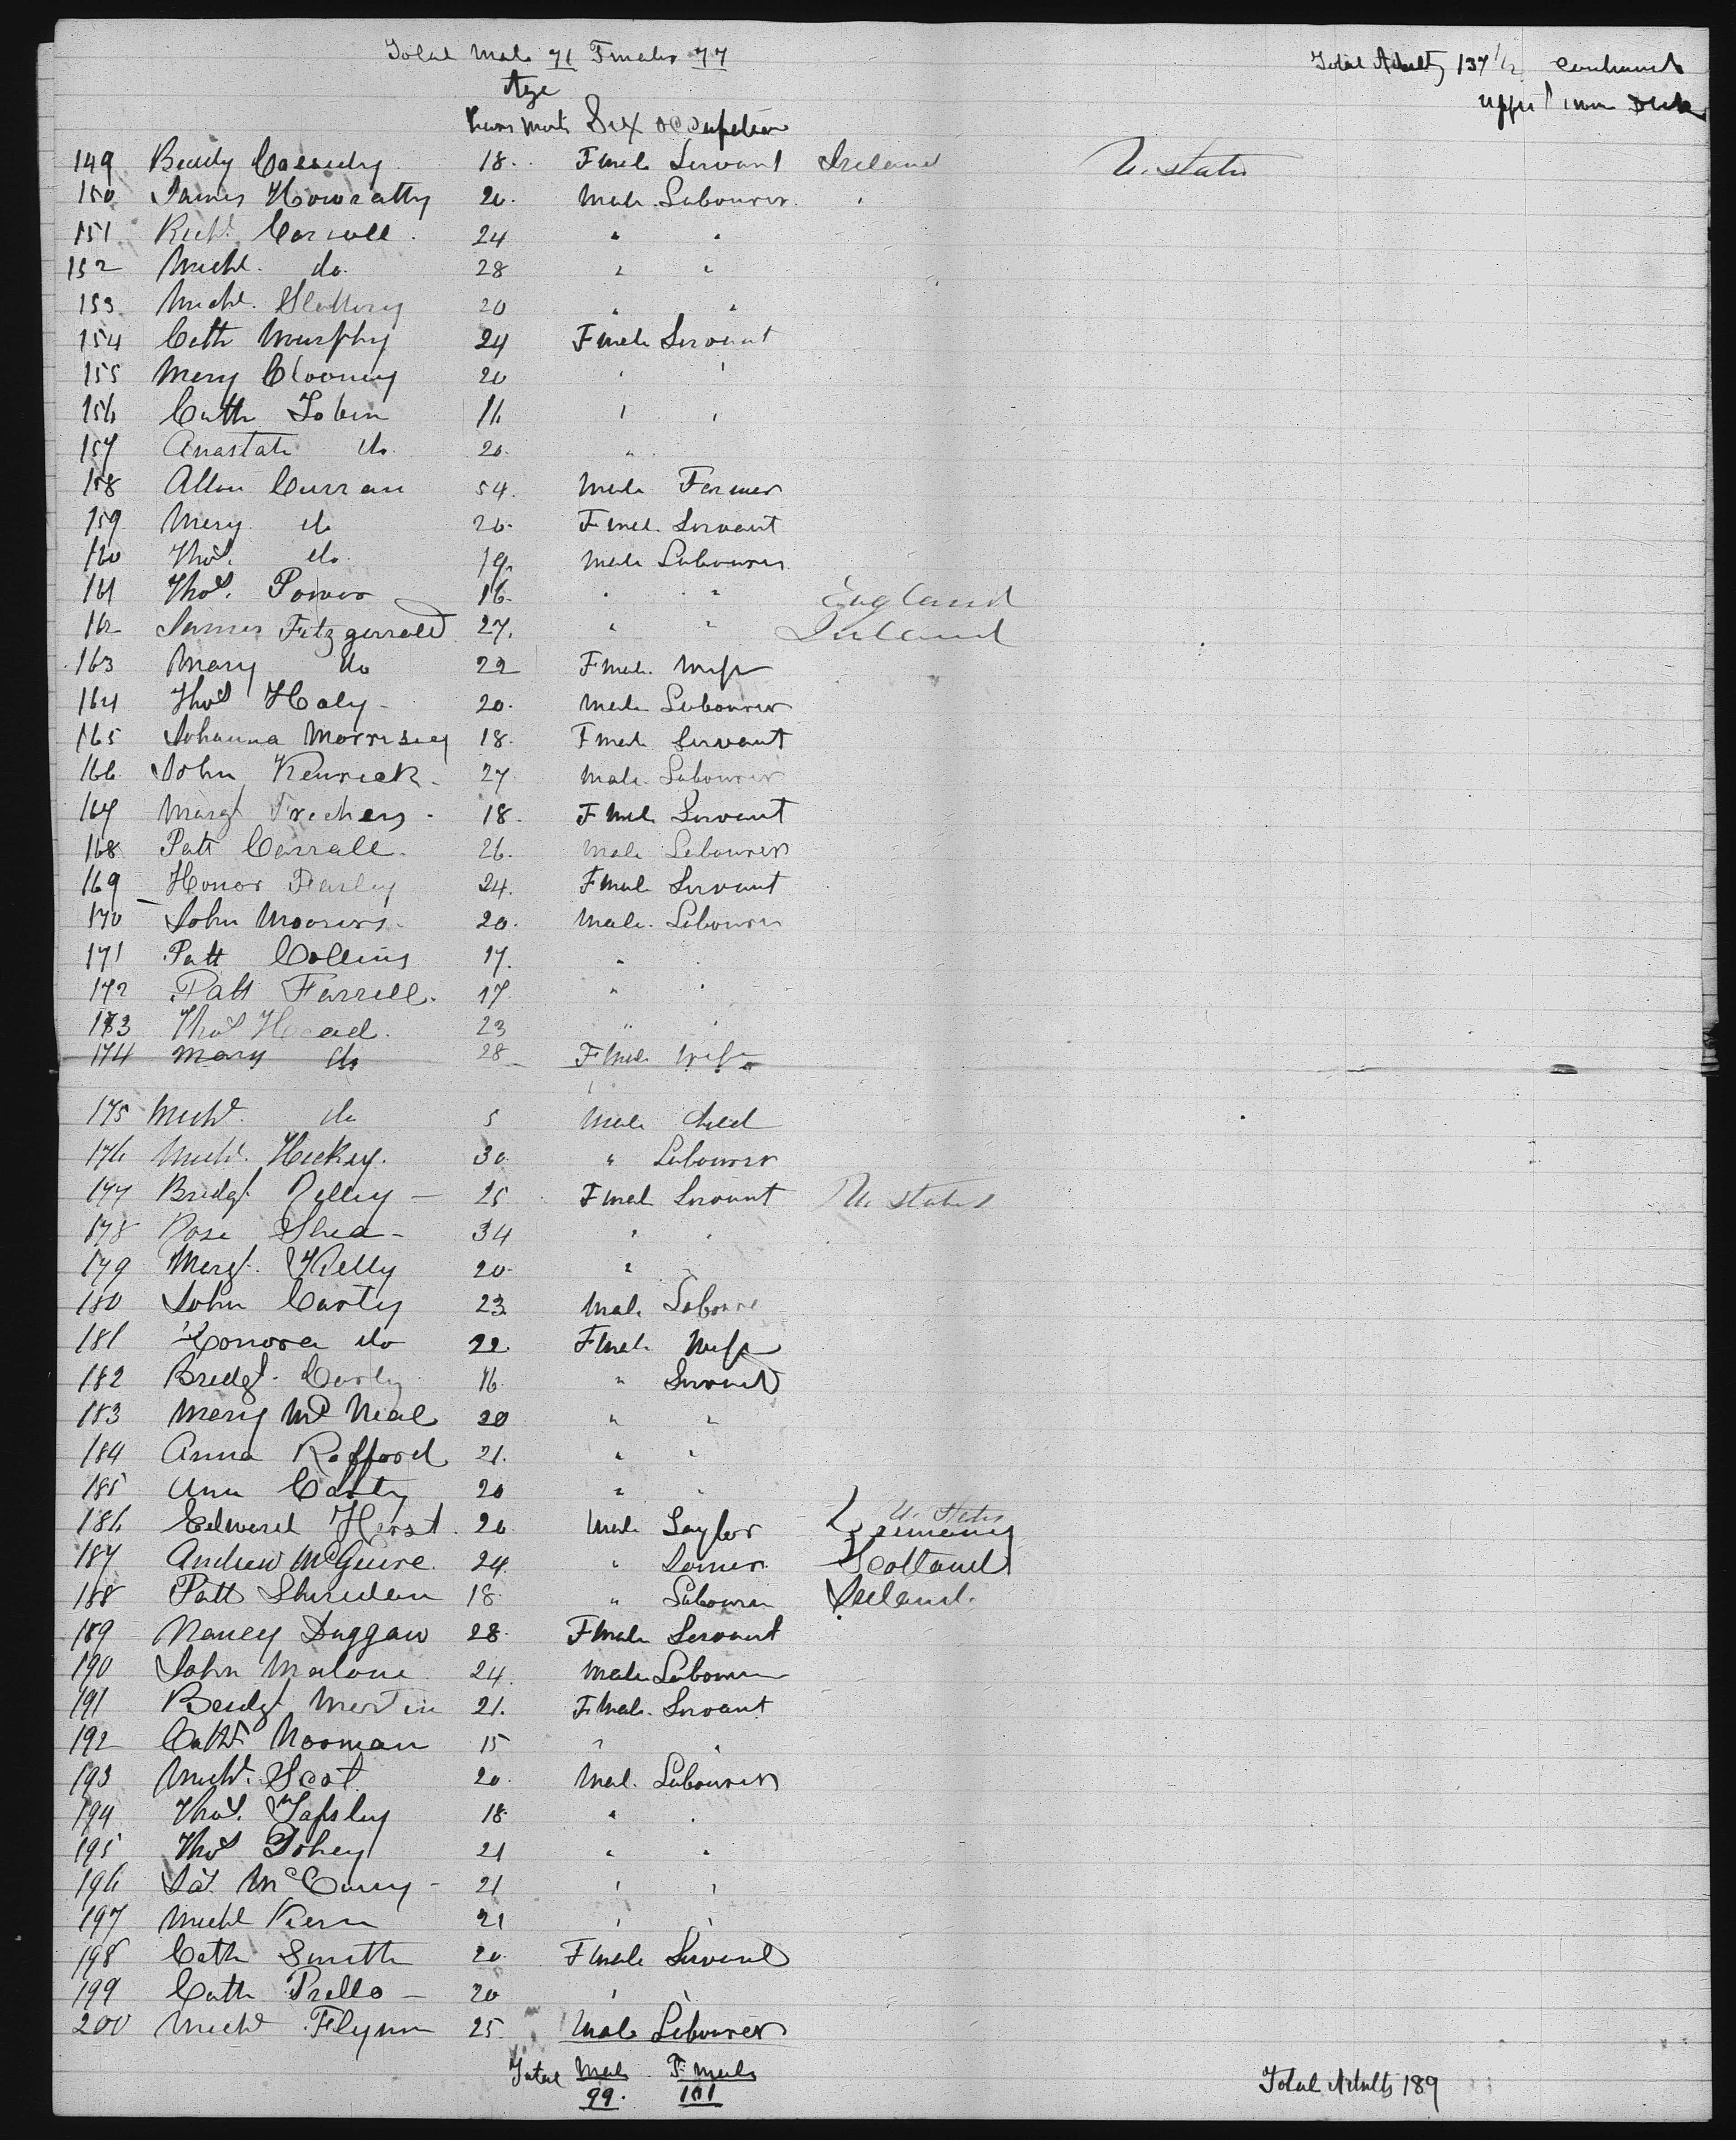 Total Male 71 Females 77 Total Adults 137 1/2 Continued
Age upper 'tween Deck
Years Months Sex Occupation
149 Biddy Cassidy 18 Female Servant Ireland U. States
150 James Howratty 20 Male Labourer "
151 Richd. Carroll 24 " "
152 Michl. do 28 " "
153 Michl. Slattery 20 " "
154 Cath Murphy 24 Female Servant
155 Mary Clooney 20 " "
156 Cath Tobin 16 " "
157 Anastati do 20 "
158 Allen Curran 54 Male Farmer
159 Mary do 20 Female Servant
160 Thos. do 19 Male Labourer
161 Thos. Power 16 " " England
162 James Fitzgerrald 27 " " Ireland
163 Mary do 22 Female Wife
164 Thos Haly 20 Male Labourer
165 Johanna Morrisey 18 Female Servant
166 John Kenrick 27 Male Labourer
167 Margt 18 Female Servant
168 Patt Carrall 26 Male Labourer
169 Honor 24 Female Servant
170 John 20 Male Labourer
171 Patt Collins 17 " "
172 Patt Farrell 17 " "
173 Thos Head 23 " "
174 Mary do 28 Female Wife
175 Michl. do 5 Male Child
176 Michl. Hickey 30 " Labourer
177 Bridgt. Rilley 25 Female Servant U. States
178 Rose Shea 34 " "
179 Margt. Kelly 20 "
180 John Carty 23 Male Laboure
181 Honora do 22 Female Wife
182 Bridgt. 16 " Servant
183 Mary McNeal 20 " "
184 Anna Rofford 21 " "
185 Ann Carty 20 " "
186 Edward Herst 20 Male Taylor U. States Germany
187 Andrew McGuire 24 " Scotland
188 Patt Sheridan 18 " Labourer Ireland
189 Nancy Duggan 28 Female Servant
190 John Malone 24 Male Labourer
191 Bridgt Martin 21 Female Servant
192 Cath Noonan 15 " "
193 Michl. Scot 20 Male Labourer
194 Thos. Tapsley 18 " "
195 Thos Dohey 21 " "
196 Jas. McCurry 21 " "
197 Michl Kern 21 " "
198 Cath Smith 20 Female Servant
199 Cath Prello 20 " "
200 Michl Flynn 25 Male Labourer
Total Male Female
99. 101 Total Adults 189